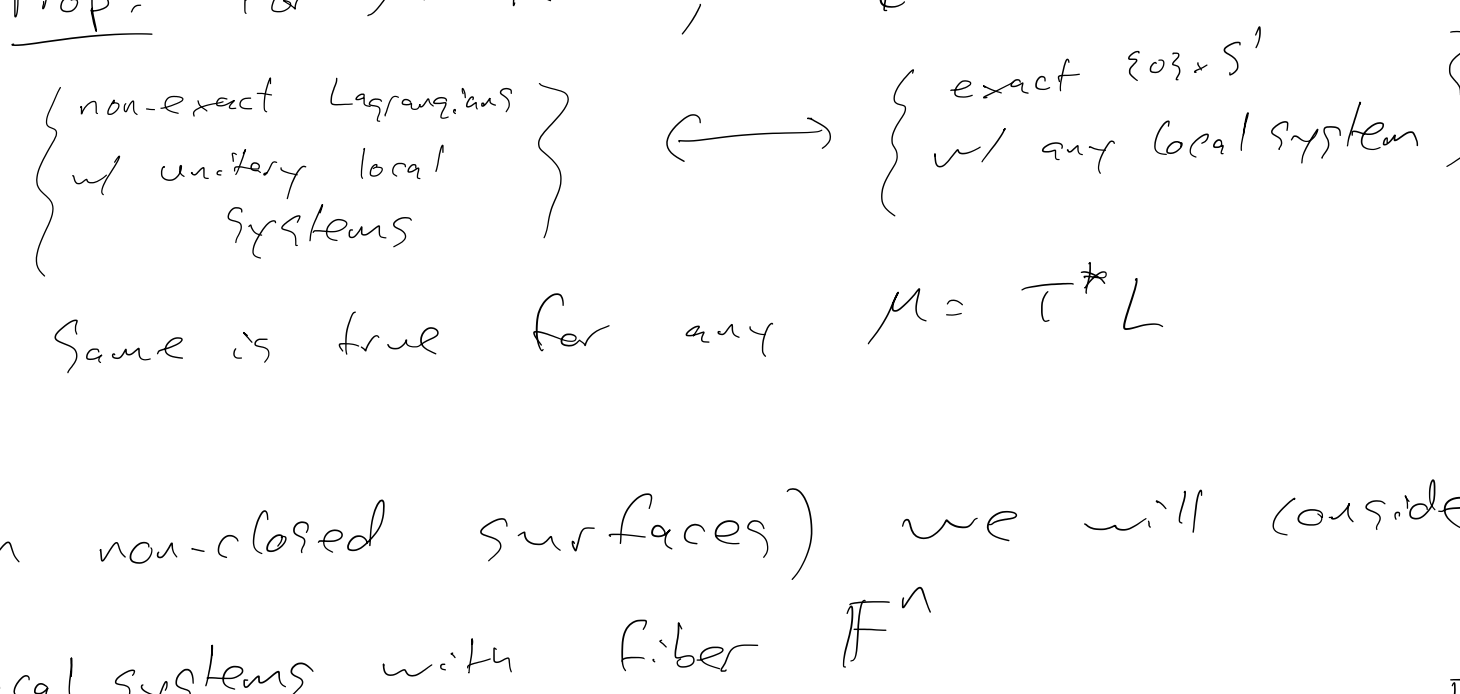 Prop.
{ non-exact Lagrangians w/ unitary local systems } ⟷ { exact {0}×S¹ w/ any local system }
Same is true for any M = T*L
non-closed surfaces) we will conside
cal systems with fiber 𝔽ⁿ